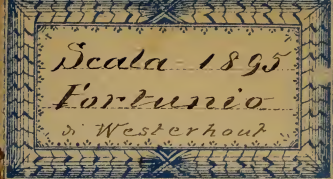 Scala 1895
Fortunio
di Westerhout